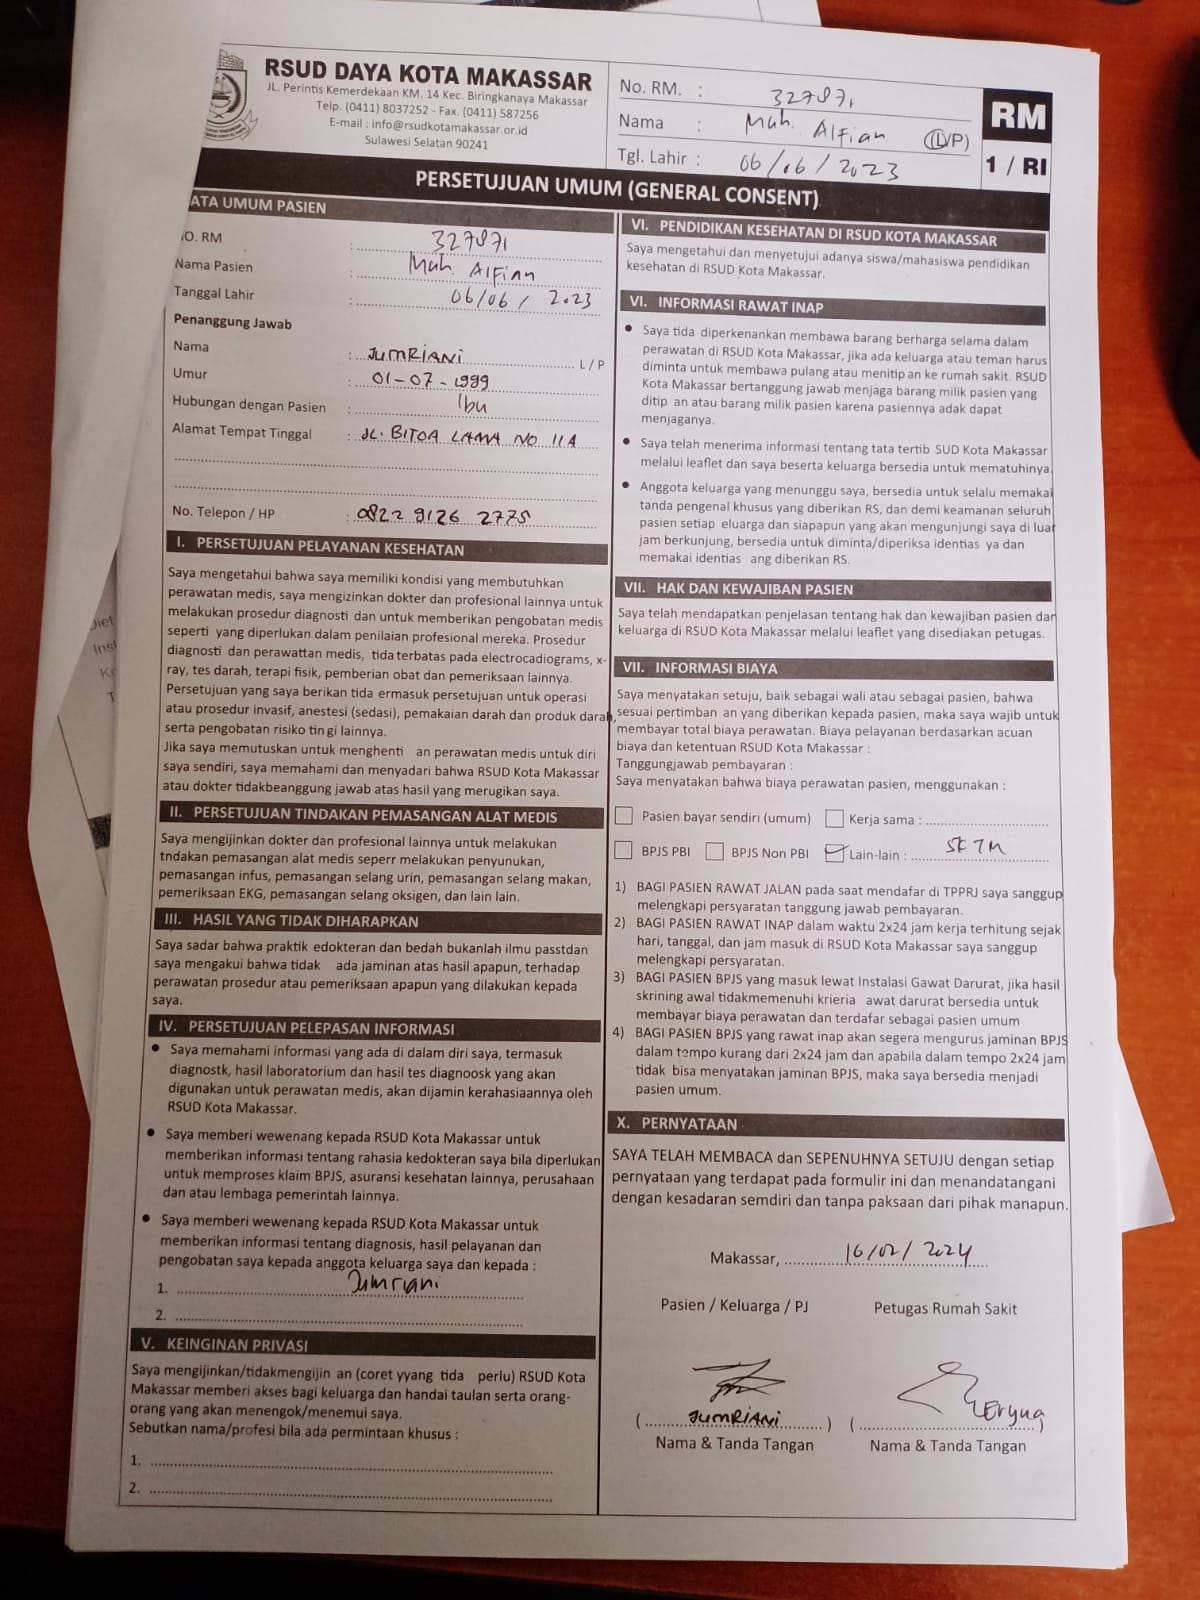 RSUD DAYA KOTA MAKASSAR
JL. Perintis Kemerdekaan KM. 14 Kec. Biringkanaya Makassar
Telp. (0411) 8037252 - Fax. (0411) 587256
E-mail : info@rsudkotamakassar.or.id
Sulawesi Selatan 90241
No. RM. : 327871
Nama : Muh. Alfian (L/P)
Tgl. Lahir : 06/06/2023
RM
1 / RI
PERSETUJUAN UMUM (GENERAL CONSENT)
ATA UMUM PASIEN
O. RM : 327871
Nama Pasien : Muh. Alfian
Tanggal Lahir : 06/06/2023
Penanggung Jawab
Nama : JUMRIANI L / P
Umur : 01-07-1999
Hubungan dengan Pasien : Ibu
Alamat Tempat Tinggal : JL. BITOA LAMA NO 11A
No. Telepon / HP : 0822 9126 2775
I. PERSETUJUAN PELAYANAN KESEHATAN
Saya mengetahui bahwa saya memiliki kondisi yang membutuhkan
perawatan medis, saya mengizinkan dokter dan profesional lainnya untuk
melakukan prosedur diagnosti dan untuk memberikan pengobatan medis
seperti yang diperlukan dalam penilaian profesional mereka. Prosedur
diagnosti dan perawattan medis, tida terbatas pada electrocadiograms, x-
ray, tes darah, terapi fisik, pemberian obat dan pemeriksaan lainnya.
Persetujuan yang saya berikan tida ermasuk persetujuan untuk operasi
atau prosedur invasif, anestesi (sedasi), pemakaian darah dan produk darah,
serta pengobatan risiko tin gi lainnya.
Jika saya memutuskan untuk menghenti an perawatan medis untuk diri
saya sendiri, saya memahami dan menyadari bahwa RSUD Kota Makassar
atau dokter tidakbeanggung jawab atas hasil yang merugikan saya.
II. PERSETUJUAN TINDAKAN PEMASANGAN ALAT MEDIS
Saya mengijinkan dokter dan profesional lainnya untuk melakukan
tndakan pemasangan alat medis seperr melakukan penyunukan,
pemasangan infus, pemasangan selang urin, pemasangan selang makan,
pemeriksaan EKG, pemasangan selang oksigen, dan lain lain.
III. HASIL YANG TIDAK DIHARAPKAN
Saya sadar bahwa praktik edokteran dan bedah bukanlah ilmu passtdan
saya mengakui bahwa tidak ada jaminan atas hasil apapun, terhadap
perawatan prosedur atau pemeriksaan apapun yang dilakukan kepada
saya.
IV. PERSETUJUAN PELEPASAN INFORMASI
• Saya memahami informasi yang ada di dalam diri saya, termasuk
diagnostk, hasil laboratorium dan hasil tes diagnoosk yang akan
digunakan untuk perawatan medis, akan dijamin kerahasiaannya oleh
RSUD Kota Makassar.
• Saya memberi wewenang kepada RSUD Kota Makassar untuk
memberikan informasi tentang rahasia kedokteran saya bila diperlukan
untuk memproses klaim BPJS, asuransi kesehatan lainnya, perusahaan
dan atau lembaga pemerintah lainnya.
• Saya memberi wewenang kepada RSUD Kota Makassar untuk
memberikan informasi tentang diagnosis, hasil pelayanan dan
pengobatan saya kepada anggota keluarga saya dan kepada :
1. Jumriani
2.
V. KEINGINAN PRIVASI
Saya mengijinkan/tidakmengijin an (coret yyang tida perlu) RSUD Kota
Makassar memberi akses bagi keluarga dan handai taulan serta orang-
orang yang akan menengok/menemui saya.
Sebutkan nama/profesi bila ada permintaan khusus :
1.
2.
VI. PENDIDIKAN KESEHATAN DI RSUD KOTA MAKASSAR
Saya mengetahui dan menyetujui adanya siswa/mahasiswa pendidikan
kesehatan di RSUD Kota Makassar.
VI. INFORMASI RAWAT INAP
• Saya tida diperkenankan membawa barang berharga selama dalam
perawatan di RSUD Kota Makassar, jika ada keluarga atau teman harus
diminta untuk membawa pulang atau menitip an ke rumah sakit. RSUD
Kota Makassar bertanggung jawab menjaga barang milik pasien yang
ditip an atau barang milik pasien karena pasiennya adak dapat
menjaganya.
• Saya telah menerima informasi tentang tata tertib SUD Kota Makassar
melalui leaflet dan saya beserta keluarga bersedia untuk mematuhinya
• Anggota keluarga yang menunggu saya, bersedia untuk selalu memakai
tanda pengenal khusus yang diberikan RS, dan demi keamanan seluruh
pasien setiap eluarga dan siapapun yang akan mengunjungi saya di luar
jam berkunjung, bersedia untuk diminta/diperiksa identias ya dan
memakai identias ang diberikan RS.
VII. HAK DAN KEWAJIBAN PASIEN
Saya telah mendapatkan penjelasan tentang hak dan kewajiban pasien dan
keluarga di RSUD Kota Makassar melalui leaflet yang disediakan petugas.
VII. INFORMASI BIAYA
Saya menyatakan setuju, baik sebagai wali atau sebagai pasien, bahwa
sesuai pertimban an yang diberikan kepada pasien, maka saya wajib untuk
membayar total biaya perawatan. Biaya pelayanan berdasarkan acuan
biaya dan ketentuan RSUD Kota Makassar :
Tanggungjawab pembayaran :
Saya menyatakan bahwa biaya perawatan pasien, menggunakan :
Pasien bayar sendiri (umum) Kerja sama :
BPJS PBI BPJS Non PBI Lain-lain : SKTM
1) BAGI PASIEN RAWAT JALAN pada saat mendafar di TPPRJ saya sanggup
melengkapi persyaratan tanggung jawab pembayaran.
2) BAGI PASIEN RAWAT INAP dalam waktu 2x24 jam kerja terhitung sejak
hari, tanggal, dan jam masuk di RSUD Kota Makassar saya sanggup
melengkapi persyaratan.
3) BAGI PASIEN BPJS yang masuk lewat Instalasi Gawat Darurat, jika hasil
skrining awal tidakmemenuhi krieria awat darurat bersedia untuk
membayar biaya perawatan dan terdafar sebagai pasien umum
4) BAGI PASIEN BPJS yang rawat inap akan segera mengurus jaminan BPJS
dalam tempo kurang dari 2x24 jam dan apabila dalam tempo 2x24 jam
tidak bisa menyatakan jaminan BPJS, maka saya bersedia menjadi
pasien umum.
X. PERNYATAAN
SAYA TELAH MEMBACA dan SEPENUHNYA SETUJU dengan setiap
pernyataan yang terdapat pada formulir ini dan menandatangani
dengan kesadaran semdiri dan tanpa paksaan dari pihak manapun.
Makassar, 16/02/2024
Pasien / Keluarga / PJ Petugas Rumah Sakit
( JUMRIANI ) ( )
Nama & Tanda Tangan Nama & Tanda Tangan